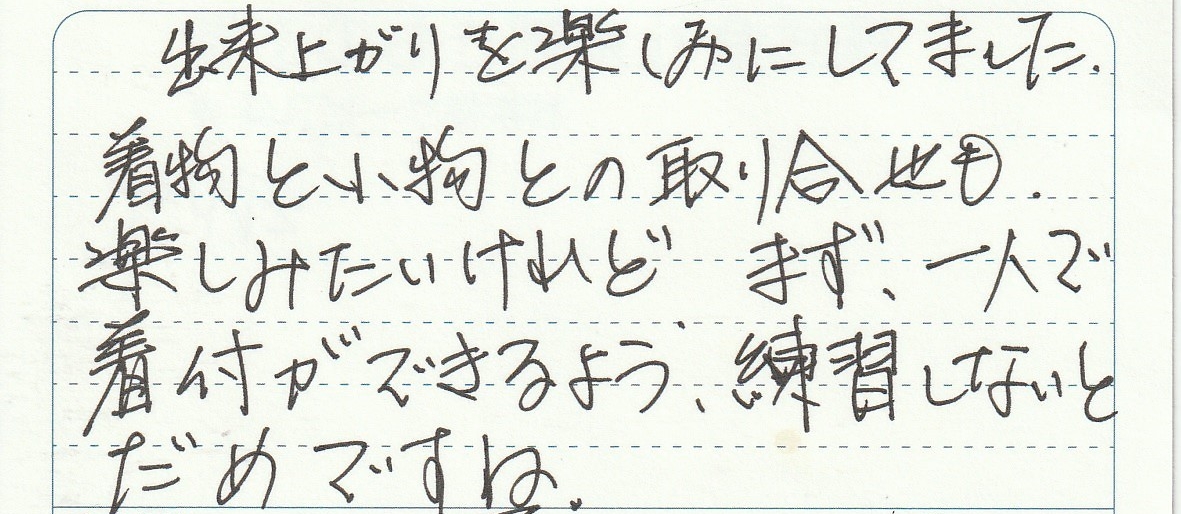 出来上がりを楽しみにしてました.
着物と小物との取り合せも.
楽しみたいけれど まず、一人で
着付ができるよう、練習しないと
だめですね.